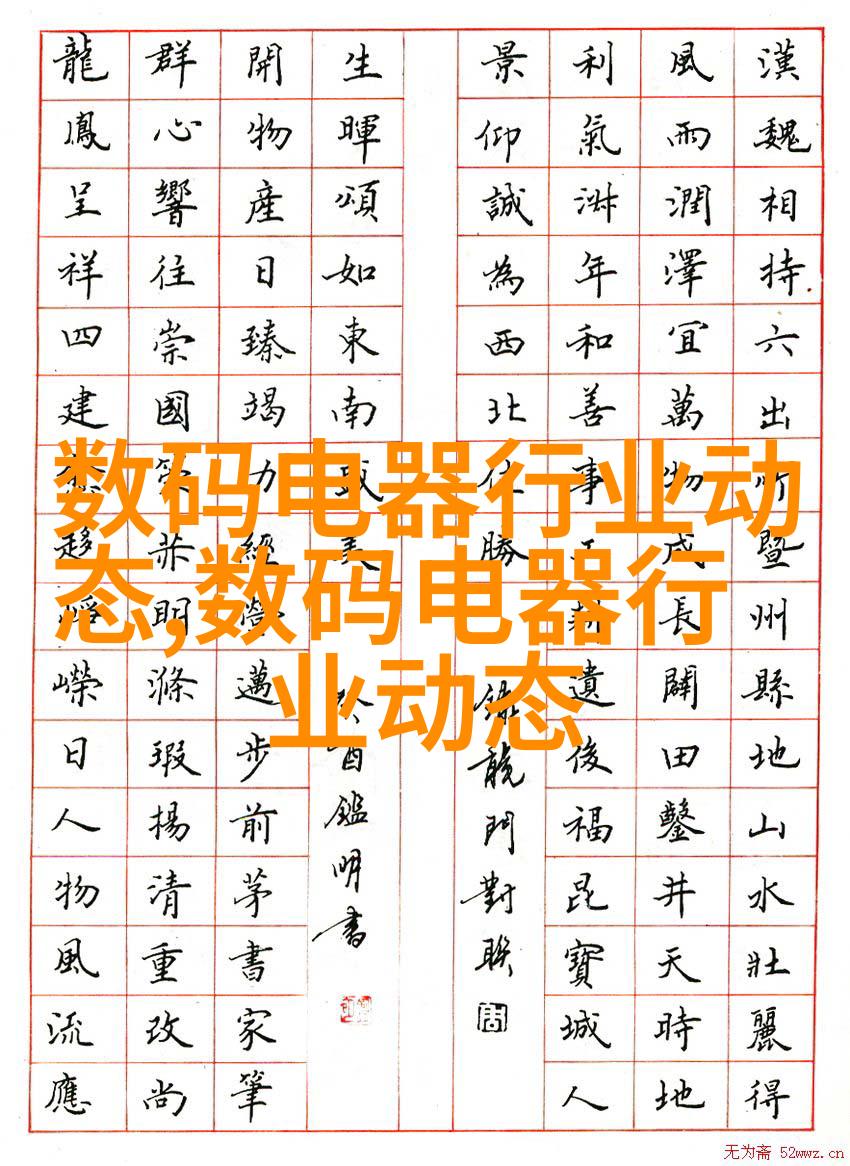 漢魏相持六出所暨州縣地山水壯麗得
風雨潤澤宜萬物成長闢田鑿井天時地
利氣淑年和善事遺後福昆寶城人
景仰誠為西北佳勝
錄龍門對聯
生暉頌如東南盛美
癸酉鑑明書
開物產日臻竭力經營邁步前茅書家筆
群心響往崇國明滌瑕揚清重改尚
龍鳳呈祥四建趨崢嶸日人物風流應
数码电器行业动
态,数码电器行
业动态
无为斋 52wwz.cn